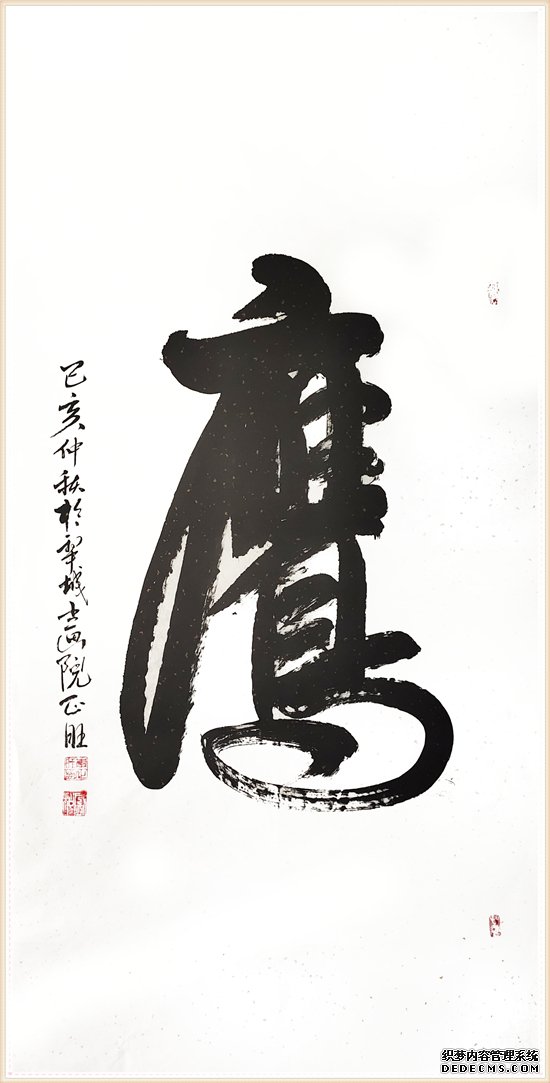 鷹
己亥仲秋於翠城書画院正旺
织梦内容管理系统
DEDECMS.COM